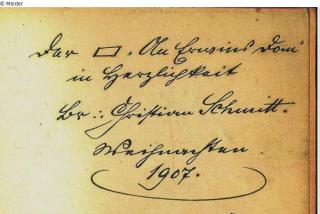 © Melder
Der ▭ „An Erwins Dom"
in Herzlichkeit
Br∴ Christian Schmitt.
Weihnachten
1907.